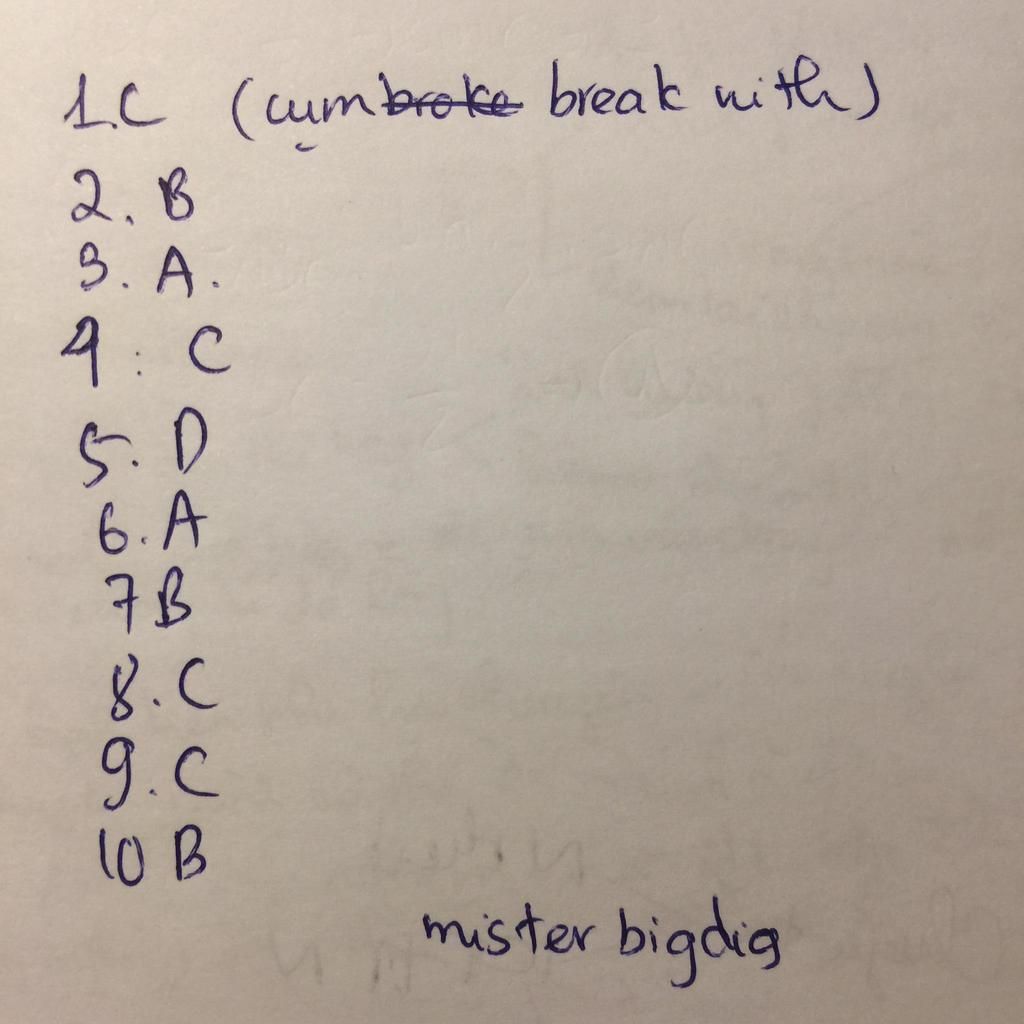 1.C (cụm broke break with)
2. B
3. A.
4. C
5. D
6. A
7 B
8. C
9. C
10 B
mister bigdig